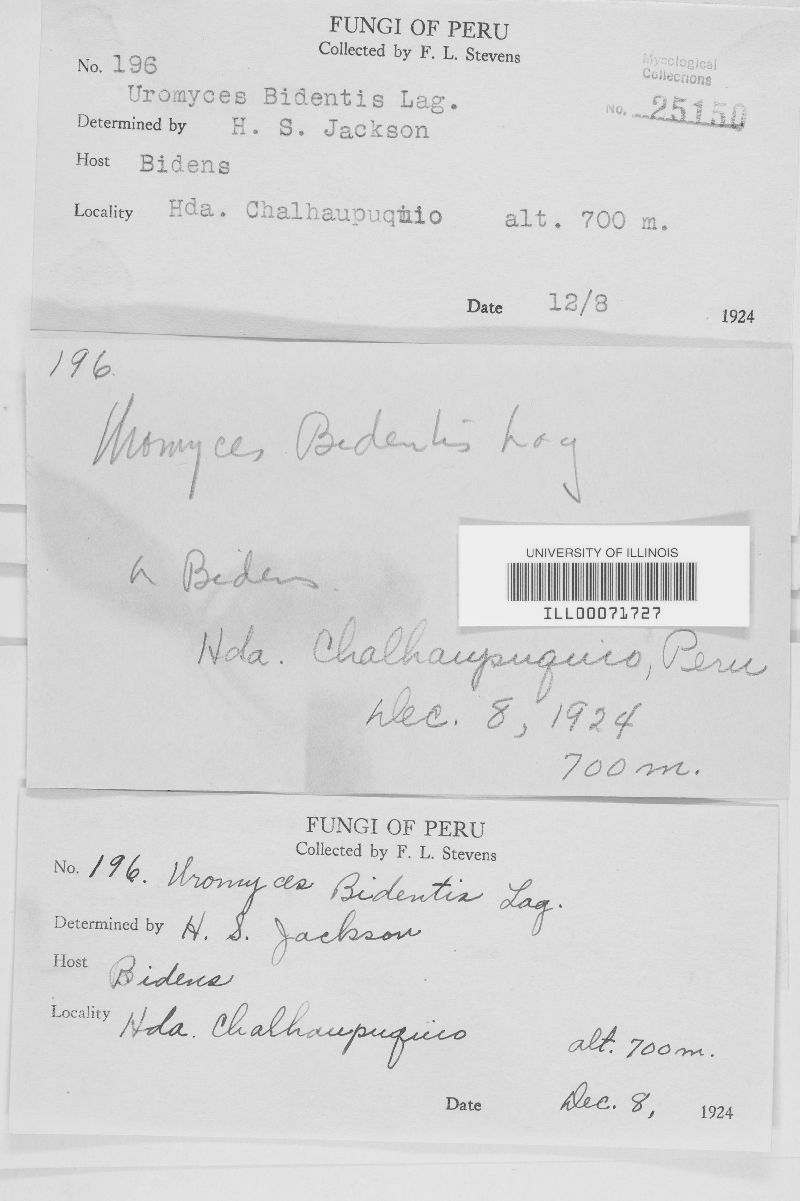 FUNGI OF PERU
Collected by F. L. Stevens
No. 196
Mycological
Collections
No. 25150
Uromyces Bidentis Lag.
Determined by H. S. Jackson
Host Bidens
Locality Hda. Chalhaupuquio alt. 700 m.
Date 12/8 1924
196.
Uromyces Bidentis Lag
Bidens.
UNIVERSITY OF ILLINOIS
ILL00071727
Hda. Chalhaupuquio, Peru
Dec. 8, 1924
700 m.
FUNGI OF PERU
Collected by F. L. Stevens
No. 196. Uromyces Bidentis Lag.
Determined by H. S. Jackson
Host Bidens
Locality Hda. Chalhaupuquio alt. 700 m.
Date Dec. 8, 1924